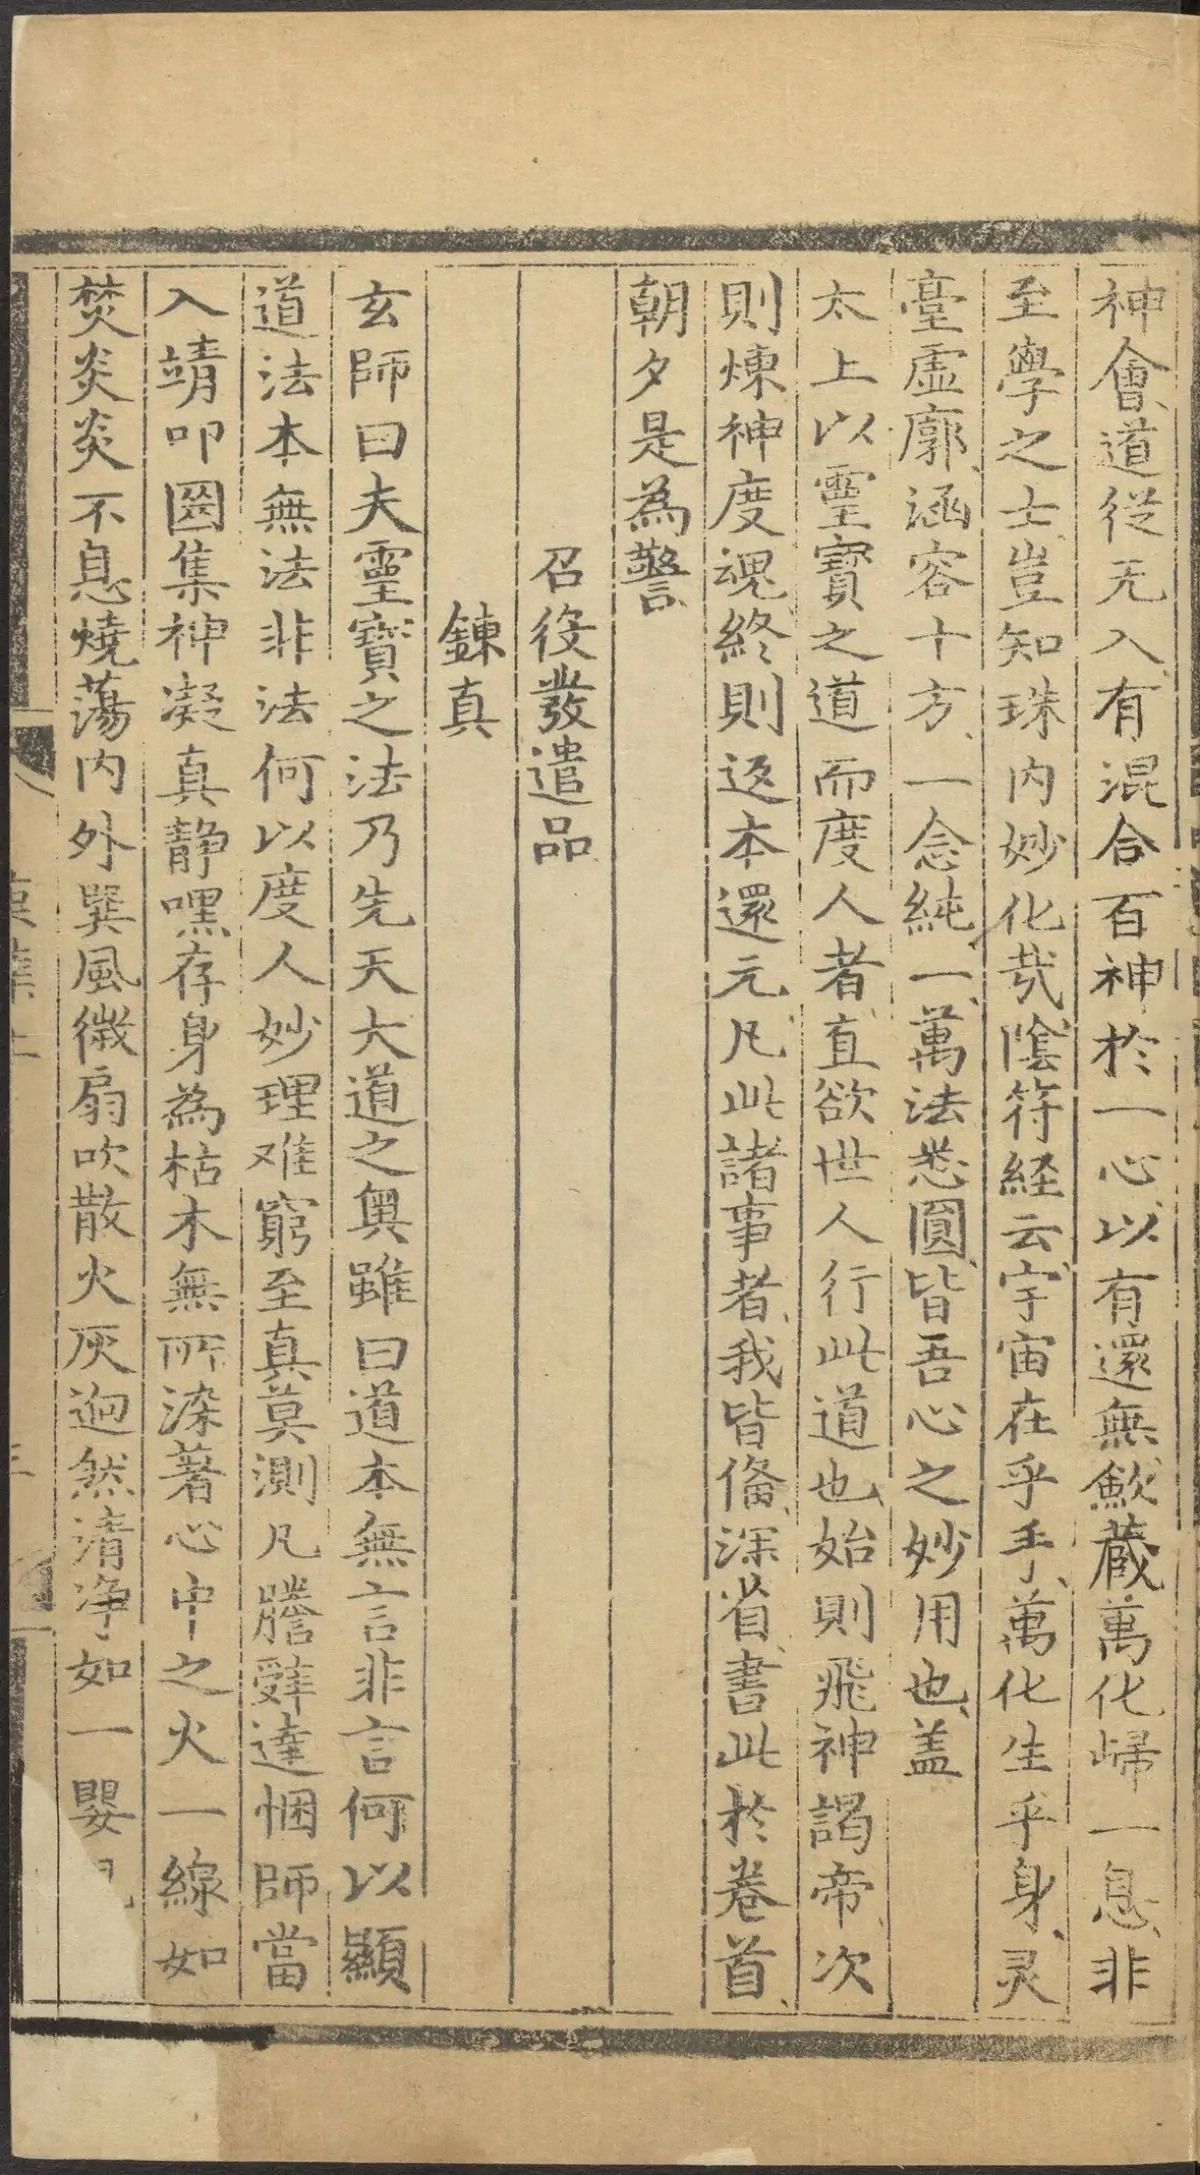 神會、道從无入有、混合百神於一心、以有還無、歛藏萬化歸一息、非
至學之士、豈知珠内妙化㢤、陰符経云、宇宙在乎手、萬化生乎身、灵
臺虛廓、涵容十方、一念純一、萬法悉圓、皆吾心之妙用也、盖
太上以靈寶之道而度人者、直欲世人行此道也、始則飛神謁帝、次
則煉神度魂、終則返本還元、凡此諸事者、我皆俻、深省、書此於卷首、
朝夕是為警
召役發遣品
鍊真
玄師曰夫靈寶之法乃先天大道之奥雖曰道本無言非言何以顯
道法本無法非法何以度人妙理难窮至真莫測凡謄辝達悃師當
入靖叩圀集神凝真静嘿存身為枯木無所染著心中之火一線如
焚炎炎不息燒蕩内外巽風微扇吹散火灰逈然清净如一嬰